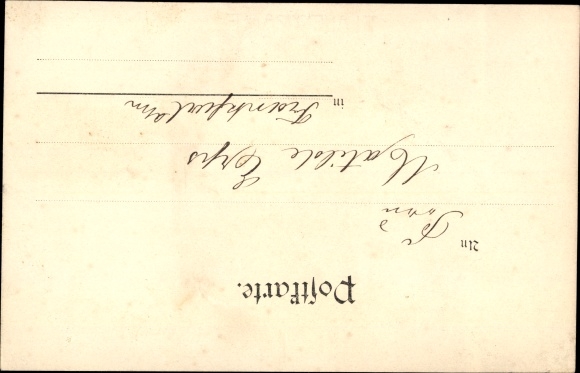 Postkarte.
An
Matilde Erps
in Frankfurt a/m